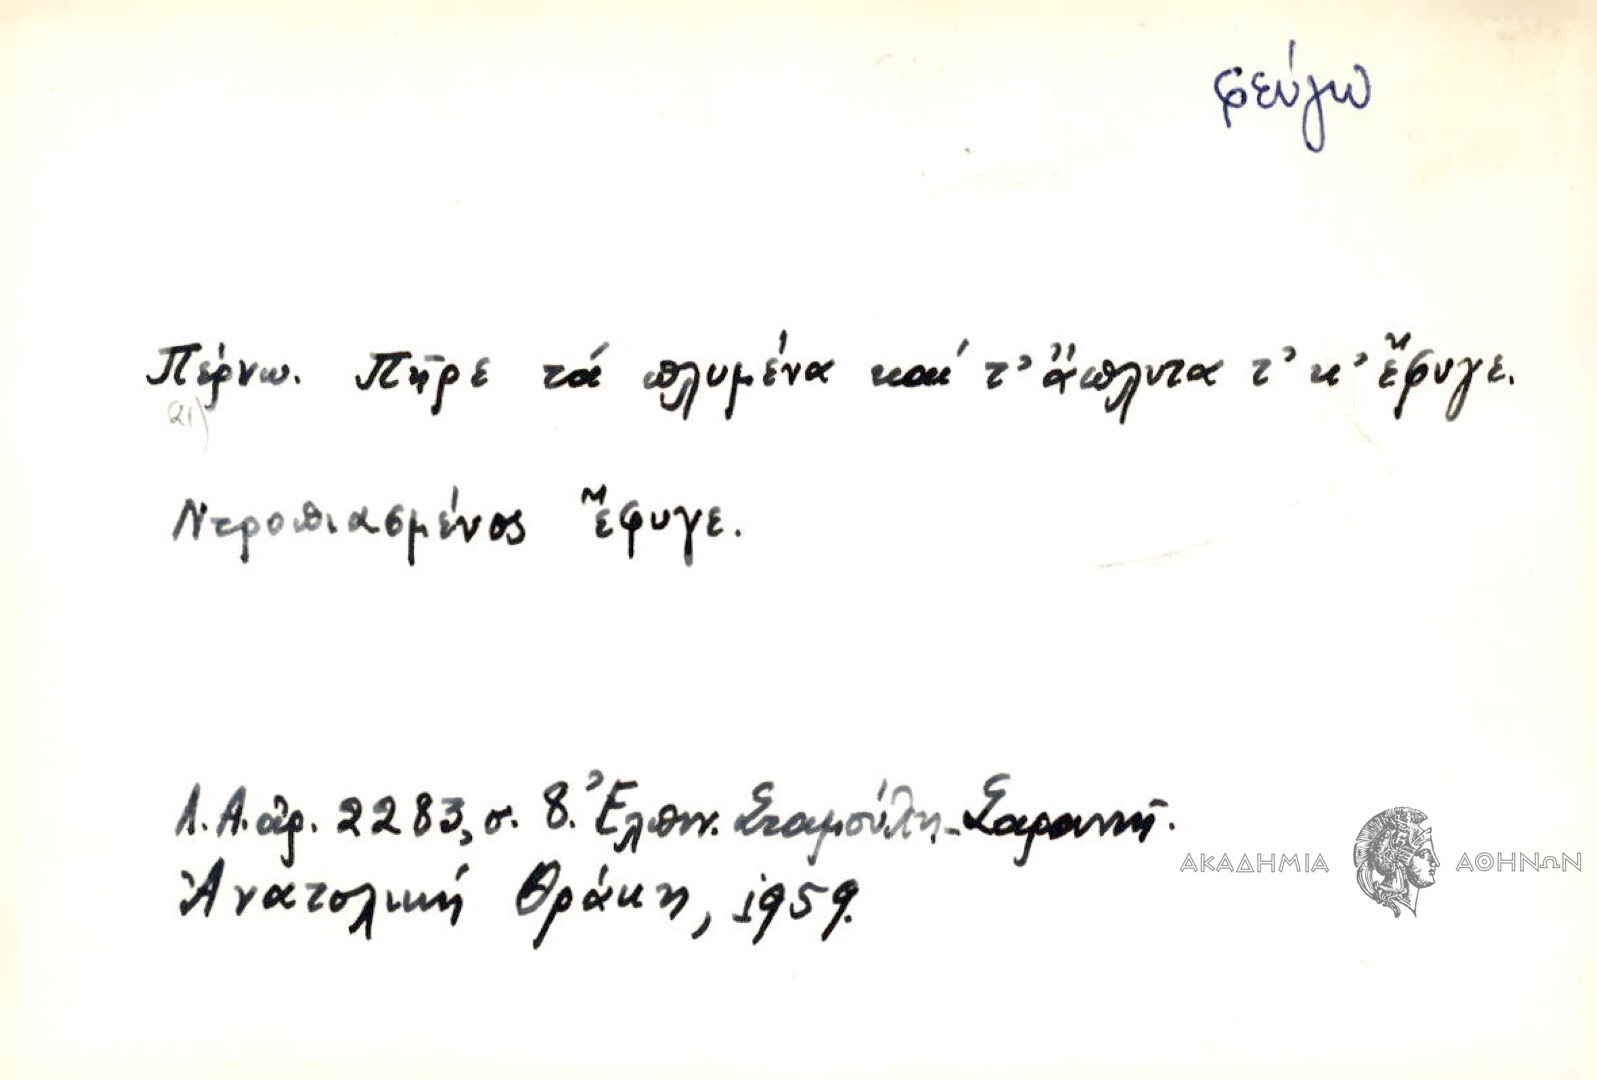 φεύγω
Πέρνω. Πῆρε τά πλυμένα καί τ' ἄπλυτα τ' κ' ἔφυγε.
21)
Ντροπιασμένος ἔφυγε.
Λ.Α. ἀρ. 2283, σ. 8. Ἐλπιν. Σταμούλη-Σαραντῆ.
Ἀνατολική Θράκη, 1959.
ΑΚΑΔΗΜΙΑ ΑΘΗΝΩΝ